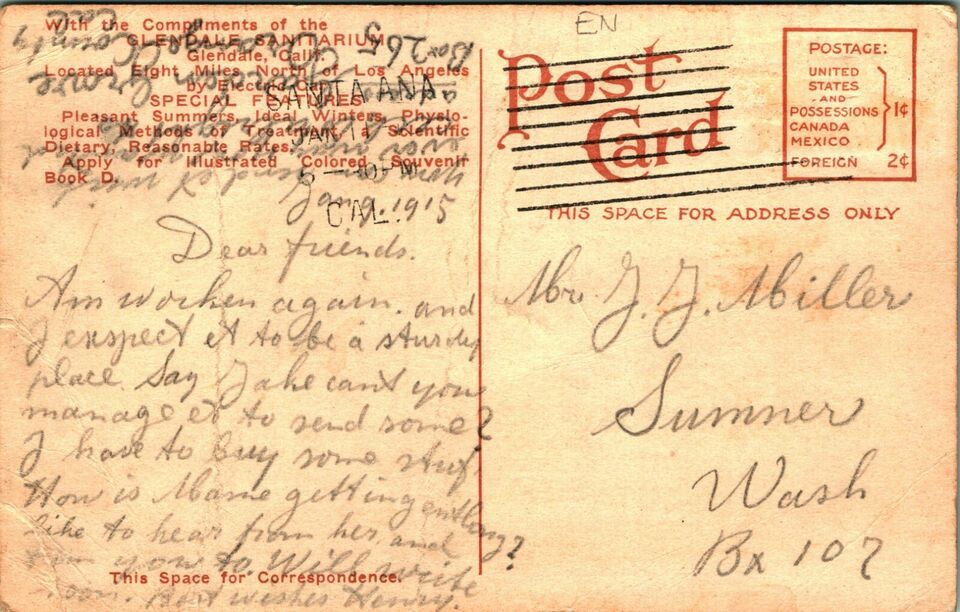 With the Compliments of the
GLENDALE SANITARIUM
Glendale, Calif.
Located Eight Miles North of Los Angeles
by Electric Car
SPECIAL FEATURES
Pleasant Summers, Ideal Winters, Physio-
logical Methods of Treatment, Scientific
Dietary, Reasonable Rates.
Apply for Illustrated Colored Souvenir
Book D.
Box 265
Garden Grove
Orange County
Cal
SANTA ANA
JAN 11
6 - PM
CAL.
Jan 9. 1915
Dear friends.
Am worken again. and
I exspect et to be a sturdy
place. Say Jake cant you
manage et to send some?
I have to buy some stuf.
How is Mame getting entlong?
like to hear from her. and
from you to Will write
soon. Best wishes Henry.
This Space for Correspondence.
EN
Post
Card
POSTAGE:
UNITED
STATES
AND
POSSESSIONS 1¢
CANADA
MEXICO
FOREIGN 2¢
THIS SPACE FOR ADDRESS ONLY
Mr J. J. Miller
Sumner
Wash
Bx 107